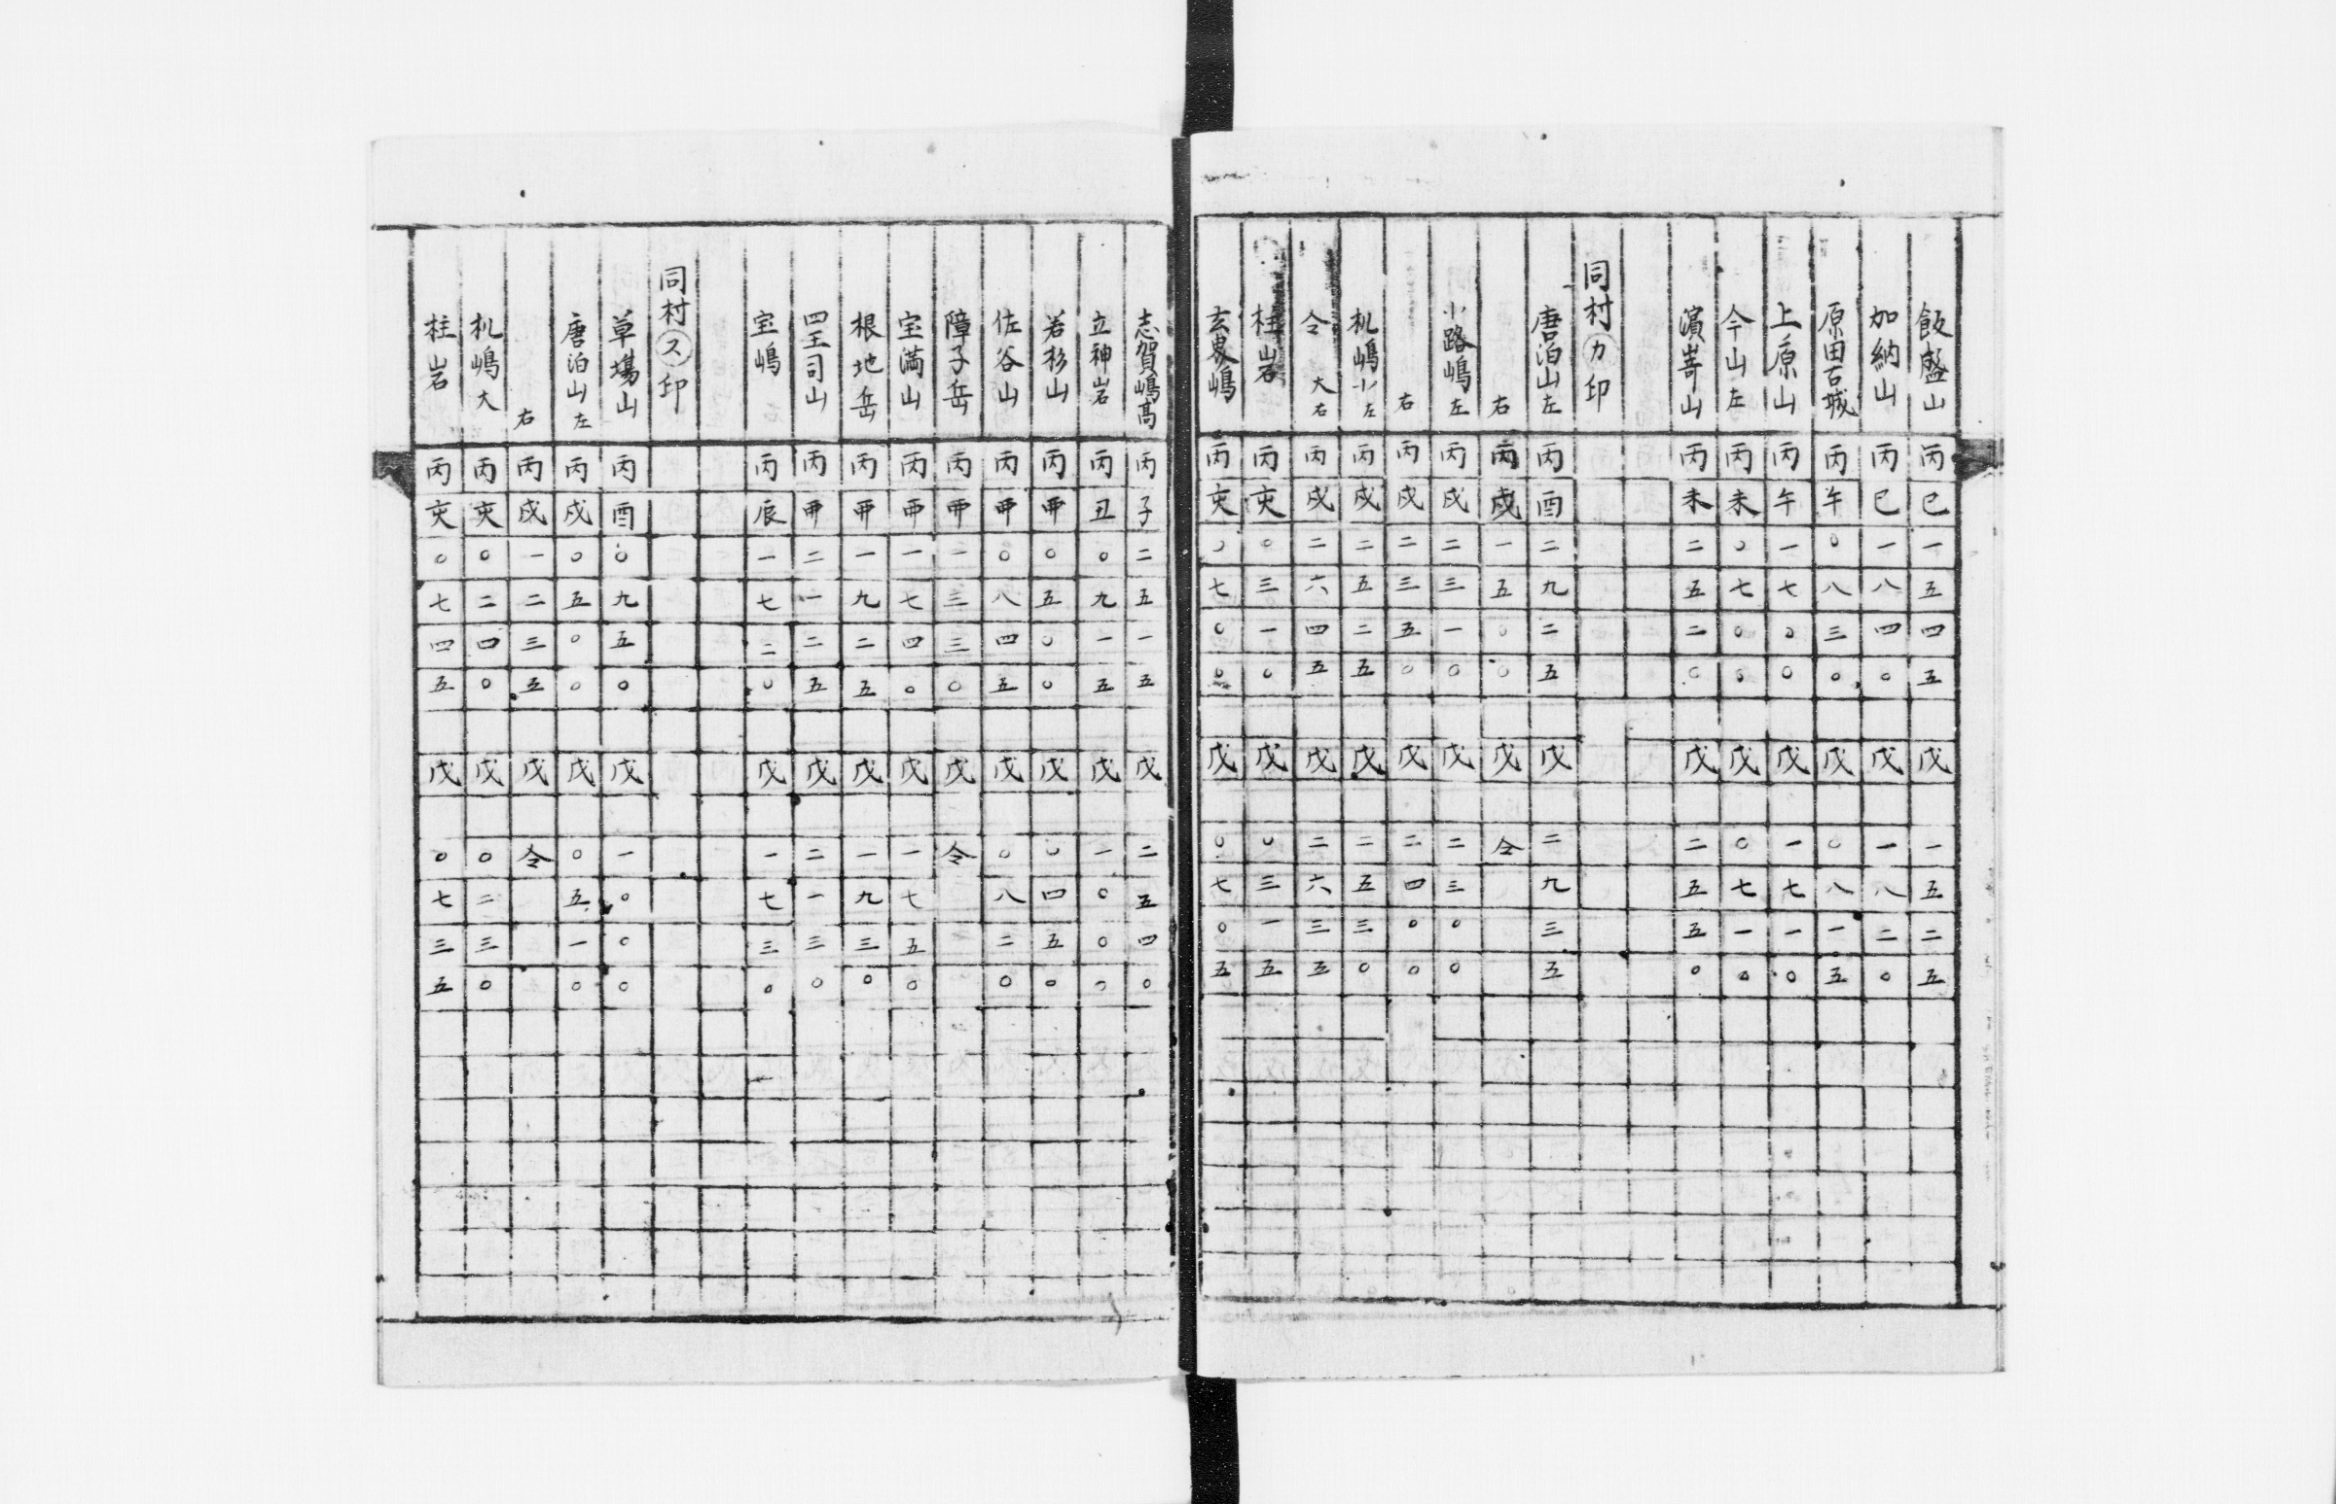 飯盛山 丙巳一五四五 戊 一五二五
加納山 丙巳一八四〇 戊 一八二〇
原田古城 丙午〇八三〇 戊 〇八一五
上ノ原山 丙午一七〇〇 戊 一七一〇
今山左 丙未〇七〇〇 戊 〇七一〇
濵嵜山 丙未二五二〇 戊 二五五〇
同村㋕印
唐泊山左 丙酉二九二五 戊 二九三五
右 丙戌一五〇〇 戊 仝
小路嶋左 丙戌二三一〇 戊 二三〇〇
右 丙戌二三五〇 戊 二四〇〇
机嶋小左 丙戌二五二五 戊 二五三〇
仝大右 丙戌二六四五 戊 二六三五
柱岩 丙亥〇三一〇 戊 〇三一五
玄界嶋 丙亥〇七〇〇 戊 〇七〇五
志賀嶋髙 丙子二五一五 戊 二五四〇
立神岩 丙丑〇九一五 戊 一〇〇〇
若杉山 丙寅〇五〇〇 戊 〇四五〇
佐谷山 丙寅〇八四五 戊 〇八二〇
障子岳 丙寅一三三〇 戊 仝
宝満山 丙寅一七四〇 戊 一七五〇
根地岳 丙寅一九二五 戊 一九三〇
四王司山 丙寅二一二五 戊 二一三〇
宝嶋 丙辰一七二〇 戊 一七三〇
同村㋜印
草塲山 丙酉〇九五〇 戊 一〇〇〇
唐泊山左 丙戌〇五〇〇 戊 〇五一〇
右 丙戌一二三五 戊 仝
机嶋大 丙亥〇二四〇 戊 〇二三〇
柱岩 丙亥〇七四五 戊 〇七三五